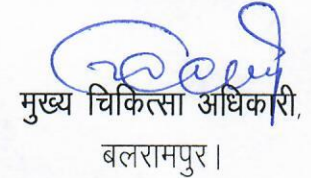 मुख्य चिकित्सा अधिकारी,
बलरामपुर।